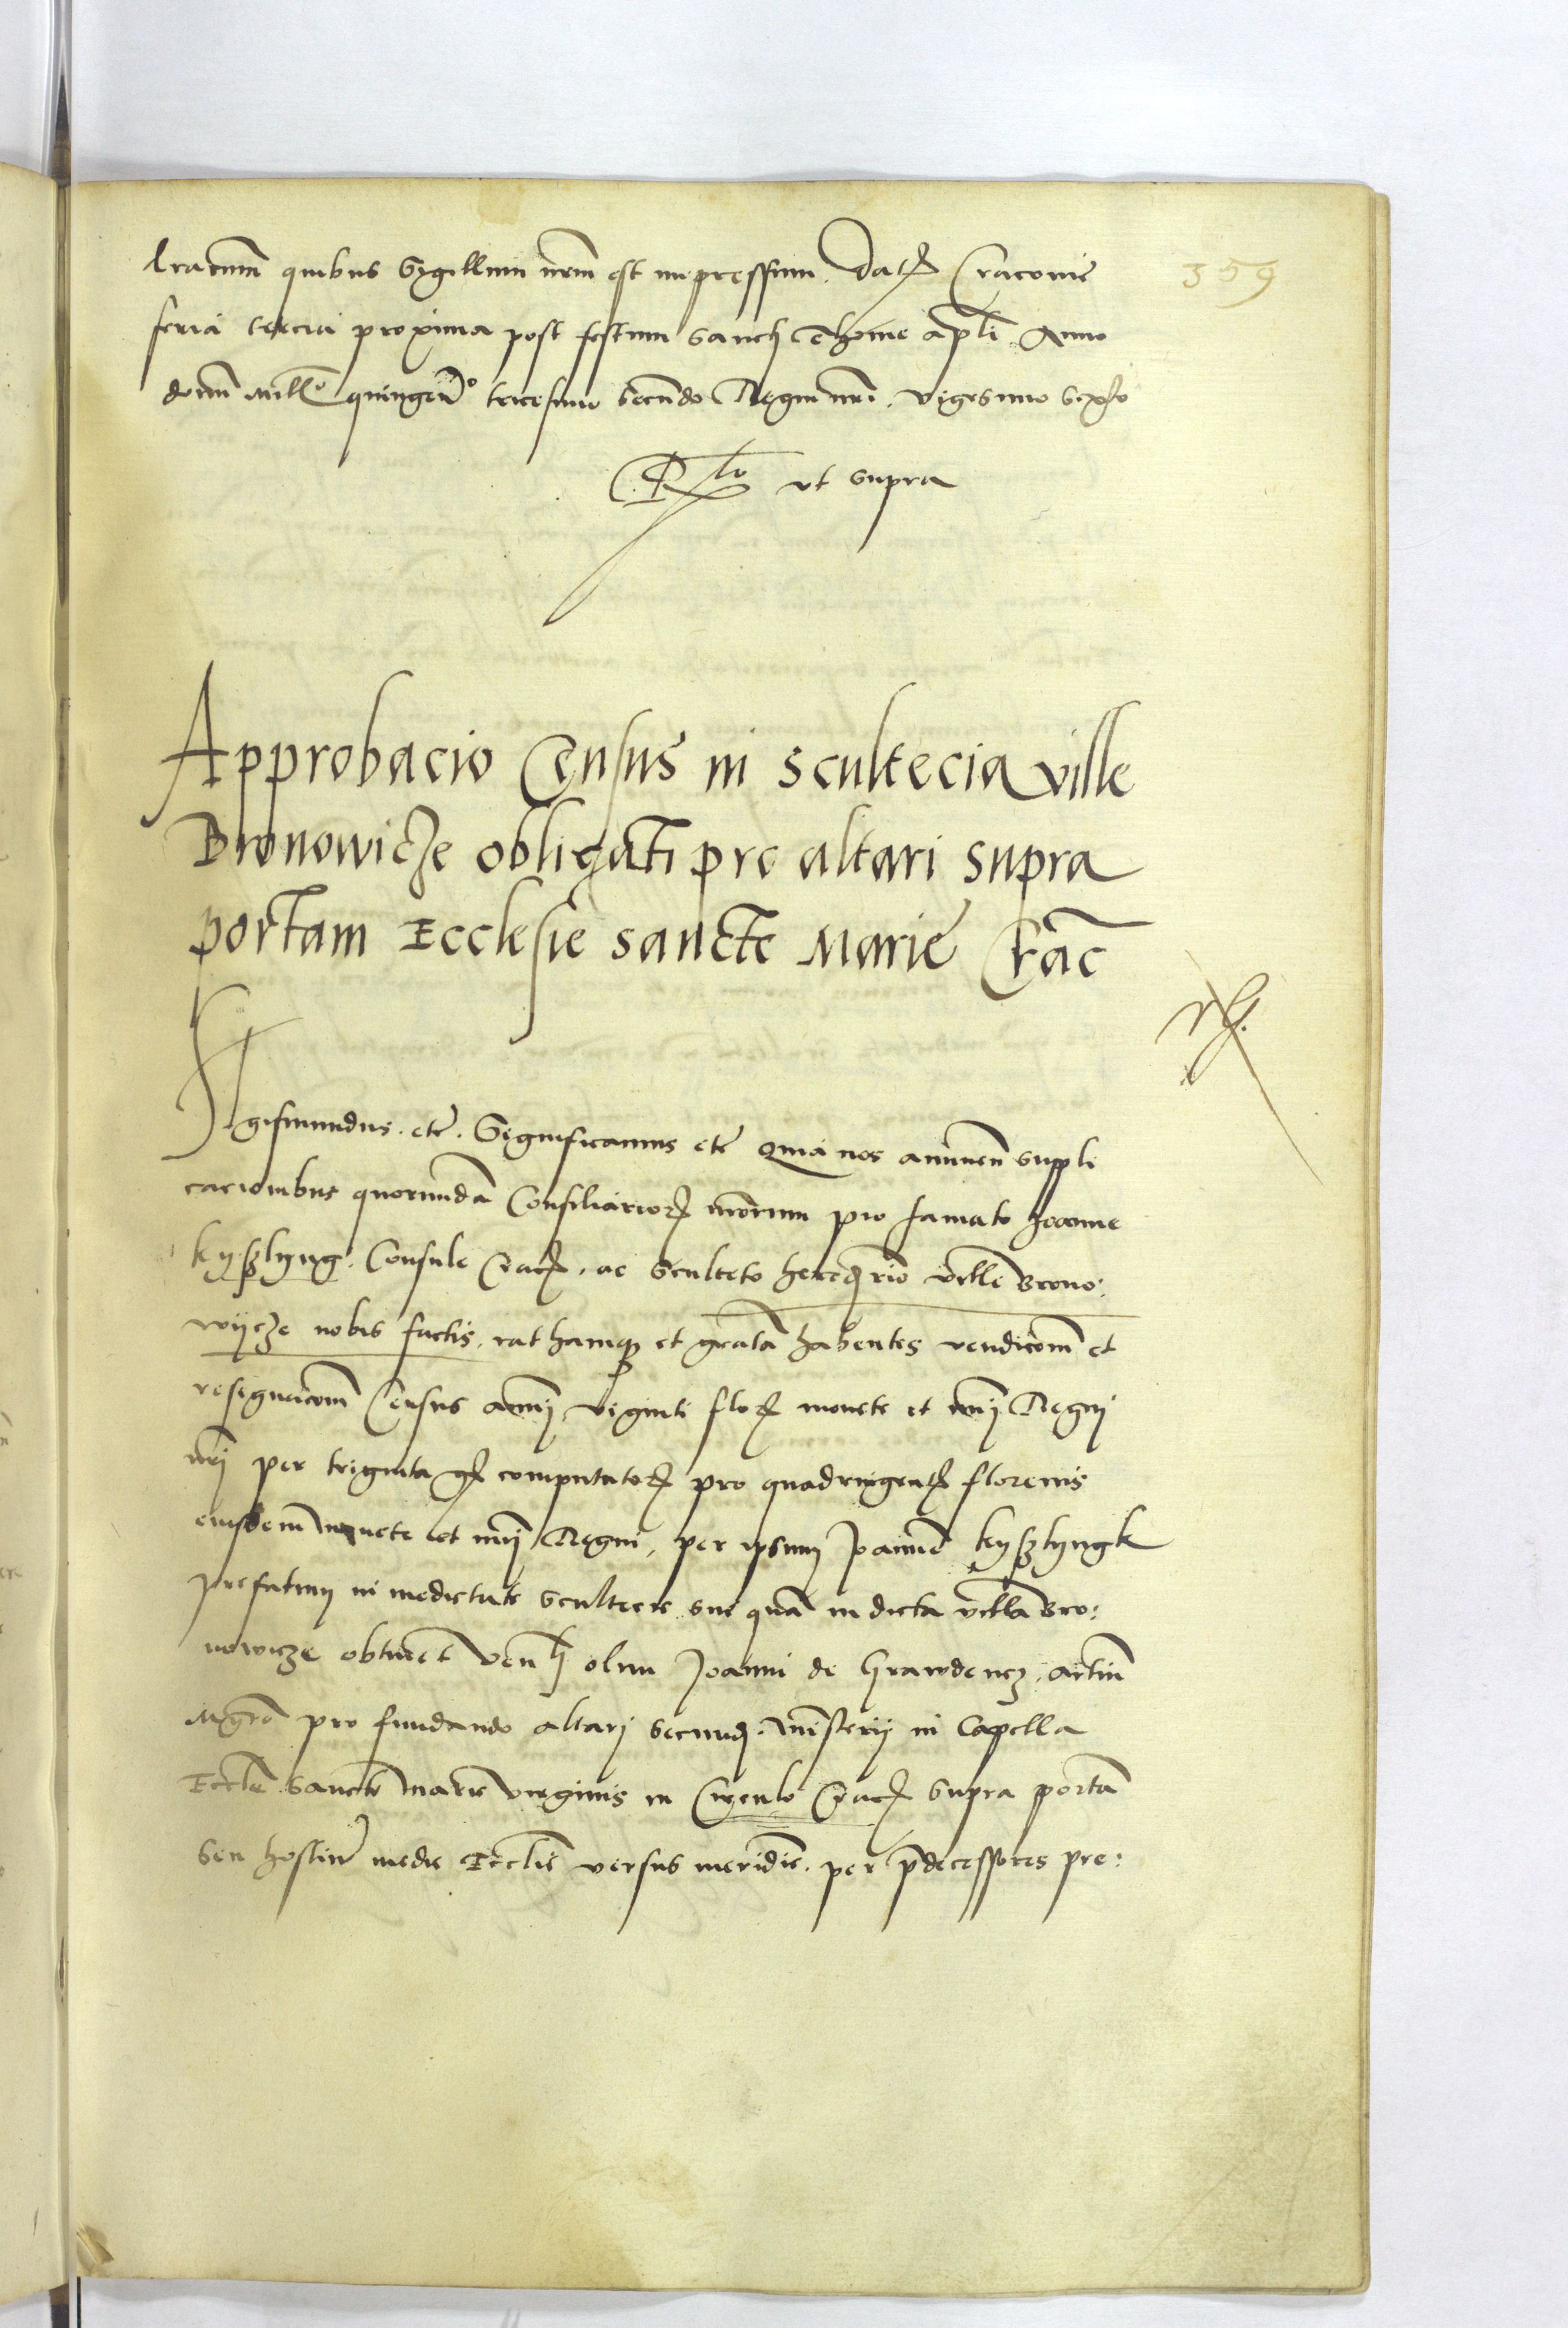 lrarum quibus Sygillum nrm est impressum. Dat Cracovie
feria tercia proxima post festum sancti Thome apli Anno
domi Millo quingeno tricesimo secundo Regni nri. vigesimo sexto
Rlo ut supra
359
Approbacio Census in scultecia ville
Bronowicze obligati pro altari supra
portam Ecclesie sancte Marie Crac
Sigismundus. etc. Significamus etc Quia nos annuen suppli
cacionibus quorunda Consiliarior nrorum pro famato Joanne
kyszlyng. Consule Crac. ac Sculteto heredrio ville Brono:
wycze nobis factis. rathamque et grata habentes vendicom et
resignacom Census annuj viginti flor monete et nuj Regnj
nrj per triginta gr computator pro quadringent florenis
eiusdem monete et nuj Regni, per ipsum Joanne kyszlyngk
prefatum in medietate scultecie sue qua in dicta villa Bro:
nowicze obtinet Venli olim Joanni de Grawdencz. artium
Mgro pro fundando altari secund. ministerij in Capella
Eccle sancte marie virginis in Circulo Crac supra porta
seu hostiu medie Ecclie versus meridie. per pdecessores pre: